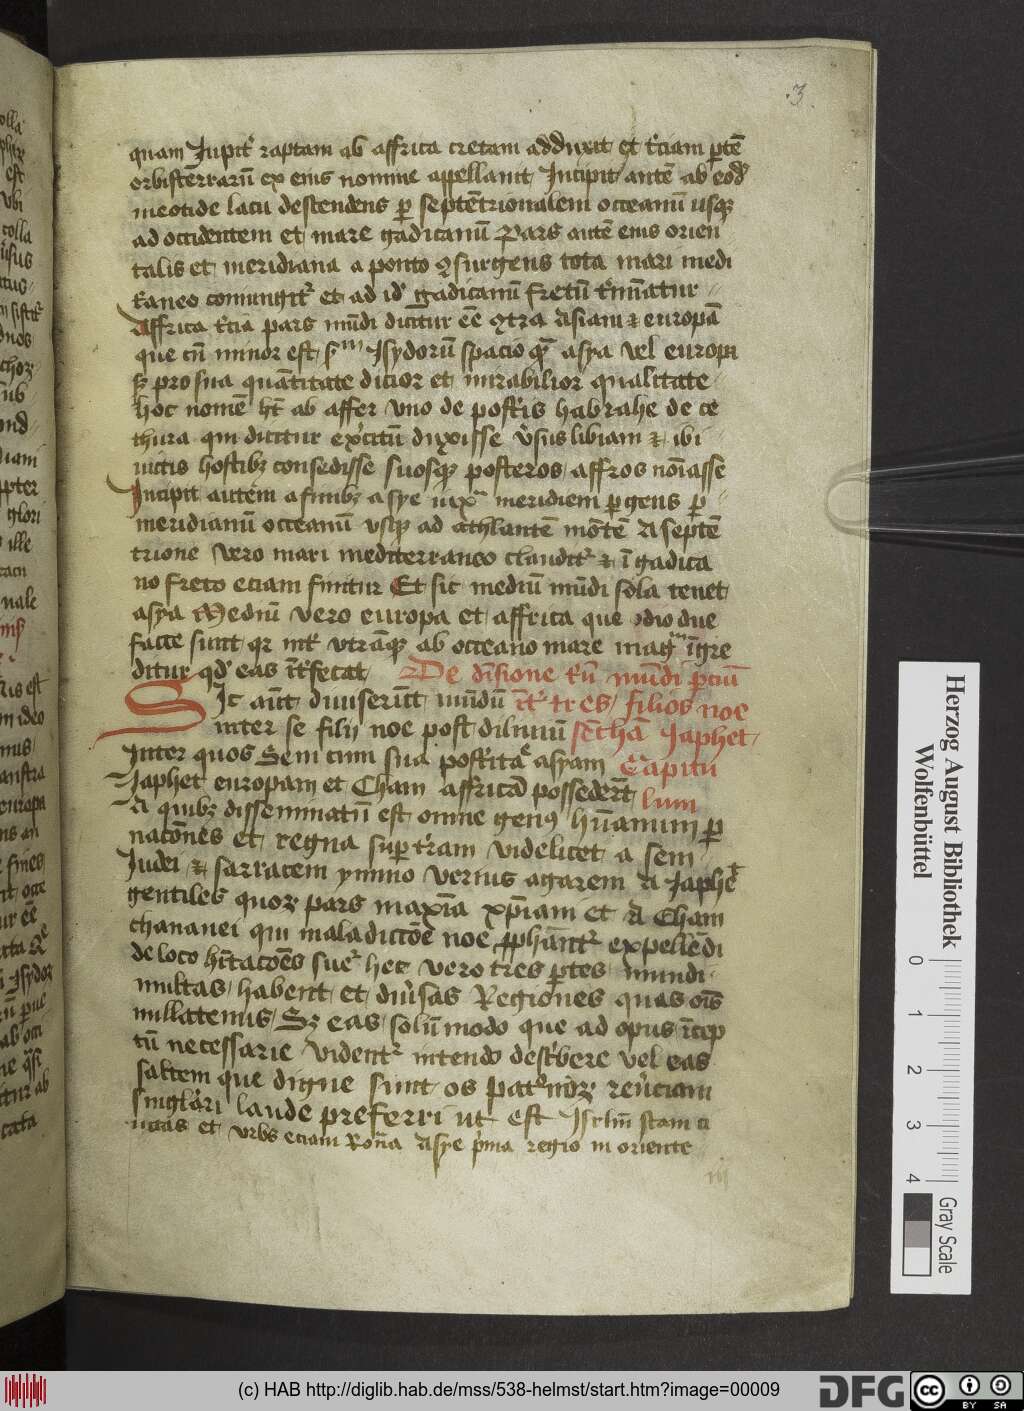 .3.
quam Jupitˀ raptam ab affrica cretam adduxit et tˀciam ꝑtē
orbisterrarū ex eius nomine appellauit Incipit autē ab eodē
meotide lacu descendens ꝑ septētrionalem occeanū usqꝫ
ad occidentem et mare gadicanū Pars autē eius orien
talis et meridiana a ponto ꝯsurgens tota mari medi
tˀaneo coniungitˀ et ad id' gadicanū fretū tˀmīatur
Affrica tˀcia pars mūdi dicitur eē ꝯtra asiam et europā
que cū minor est sᵐ Isydorū spacio qᵃ̄ asya vel europa
sꝫ pro sua quātitate dicior et mirabilior qualitate
hoc nomē ht̄ ab affer vno de postˀis habrahe de ce
thura qui dicitur exˀcitū duxisse vˀsus libiam et ibi
uictis hostibꝫ consedisse suosqꝫ posteros affros noīasse
Incipit autem a finibꝫ asye iuxᵃ meridiem ꝑgens ꝑ
meridianū occeanū vsqꝫ ad athlantē mōtē A septē
trione vero mari mediterraneo claudit᷑ et ī gadica
no freto eciam finitur Et sic mediū mūdi sola tenet
asya Mediū vero europa et affrica que ideo due
facte sunt qꝛ intˀ vtrāqꝫ ab occeano mare magᵐ īgre
ditur qd' eas ītˀsecat De diuisione tˀū mūdi ꝑciū
Sic aūt diuiserūt mūdū ītˀ tres filios noe
inter se filij noe post diluuiū sē chā Iaphet
Inter quos Sem cum sua postˀitaᵉ asyam Capitu
Iaphet europam et Cham affricā possederūt lum
A quibꝫ disseminatū est omne genꝰ hūanum ꝑ
nacōnes et regna suꝑ tˀram videlicet a sem
Iudei et sarraceni ymmo verius agareni A Iapheᵗ
gentiles quoꝝ pars maxīa xp̄iani et A Cham
chananei qui maladictōe noe ꝓphāntˀ expellēdi
de loco hītacōēs sueˀ hec vero tres ꝑtes mundi
multas habent et diuˀsas Regiones quas oīs
nullatenus Sꝫ eas solūmodo que ad opus īcep
tū necessarie videntˀ intendo descˀbere vel eas
saltem que digne sunt os patˀnoꝝ reuˀenciam
singlˀari laude preferri ut est Isrlm̄ stam ci
uitas et vrbs eciam Roma Asye pˀma regio in oriente
Herzog August Bibliothek
Wolfenbüttel
0 1 2 3 4
Gray Scale
(c) HAB http://diglib.hab.de/mss/538-helmst/start.htm?image=00009
DFG
cc
BY SA